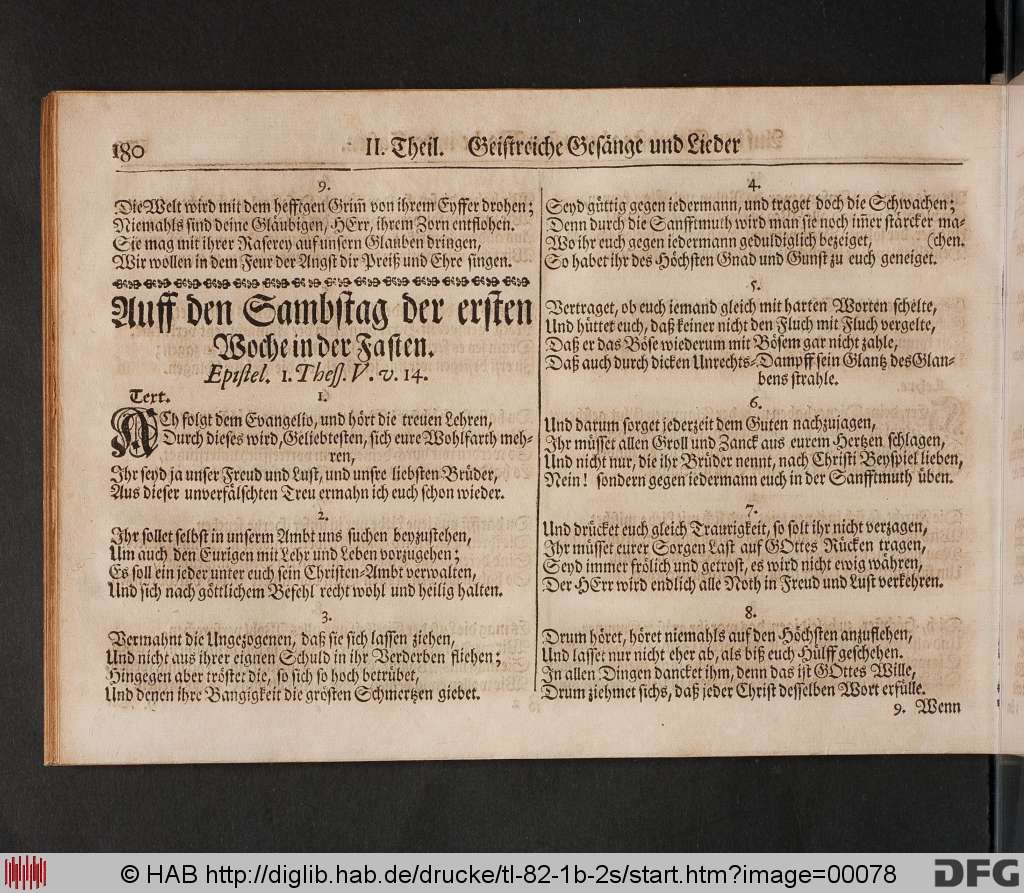 180
II. Theil. Geistreiche Gesänge und Lieder
9.
Die Welt wird mit dem hefftigen Grim̃ von ihrem Eyffer drohen;
Niemahls sind deine Gläubigen, HErr, ihrem Zorn entflohen.
Sie mag mit ihrer Raserey auf unsern Glauben dringen,
Wir wollen in dem Feur der Angst dir Preiß und Ehre singen.
Auff den Sambstag der ersten
Woche in der Fasten.
Epistel. 1. Thess. V. v. 14.
Text.
1.
ACh folgt dem Evangelio, und hört die treuen Lehren,
Durch dieses wird, Geliebtesten, sich eure Wohlfarth meh-
ren,
Ihr seyd ja unser Freud und Lust, und unsre liebsten Brüder,
Aus dieser unverfälschten Treu ermahn ich euch schon wieder.
2.
Ihr sollet selbst in unserm Ambt uns suchen beyzustehen,
Um auch den Eurigen mit Lehr und Leben vorzugehen;
Es soll ein jeder unter euch sein Christen-Ambt verwalten,
Und sich nach göttlichem Befehl recht wohl und heilig halten.
3.
Vermahnt die Ungezogenen, daß sie sich lassen ziehen,
Und nicht aus ihrer eignen Schuld in ihr Verderben fliehen;
Hingegen aber tröstet die, so sich so hoch betrübet,
Und denen ihre Bangigkeit die grösten Schmertzen giebet.
4.
Seyd güttig gegen iedermann, und traget doch die Schwachen;
Denn durch die Sanfftmuth wird man sie noch im̃er stärcker ma-
Wo ihr euch gegen iedermann geduldiglich bezeiget, (chen.
So habet ihr des Höchsten Gnad und Gunst zu euch geneiget.
5.
Vertraget, ob euch iemand gleich mit harten Worten schelte,
Und hüttet euch, daß keiner nicht den Fluch mit Fluch vergelte,
Daß er das Böse wiederum mit Bösem gar nicht zahle,
Daß auch durch dicken Unrechts-Dampff sein Glantz des Glau-
bens strahle.
6.
Und darum sorget jederzeit dem Guten nachzujagen,
Ihr müsset allen Groll und Zanck aus eurem Hertzen schlagen,
Und nicht nur, die ihr Brüder nennt, nach Christi Beyspiel lieben,
Nein! sondern gegen iedermann euch in der Sanfftmuth üben.
7.
Und drücket euch gleich Traurigkeit, so solt ihr nicht verzagen,
Ihr müsset eurer Sorgen Last auf GOttes Rücken tragen,
Seyd immer frölich und getrost, es wird nicht ewig währen,
Der HErr wird endlich alle Noth in Freud und Lust verkehren.
8.
Drum höret, höret niemahls auf den Höchsten anzuflehen,
Und lasset nur nicht eher ab, als biß euch Hülff geschehen.
In allen Dingen dancket ihm, denn das ist GOttes Wille,
Drum ziehmet sichs, daß jeder Christ desselben Wort erfülle.
9. Wenn
© HAB http://diglib.hab.de/drucke/tl-82-1b-2s/start.htm?image=00078
DFG